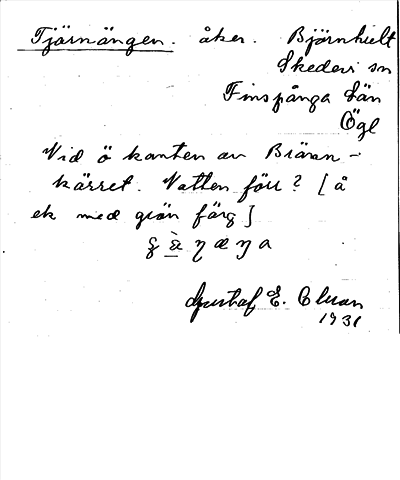 Tjärnängen. åker. Björnhult
Skedevi sn
Finspånga län
Ögl
Vid ö kanten av
kärret. Vatten förr? [å
ek med grön färg]
Gustaf E.
1931